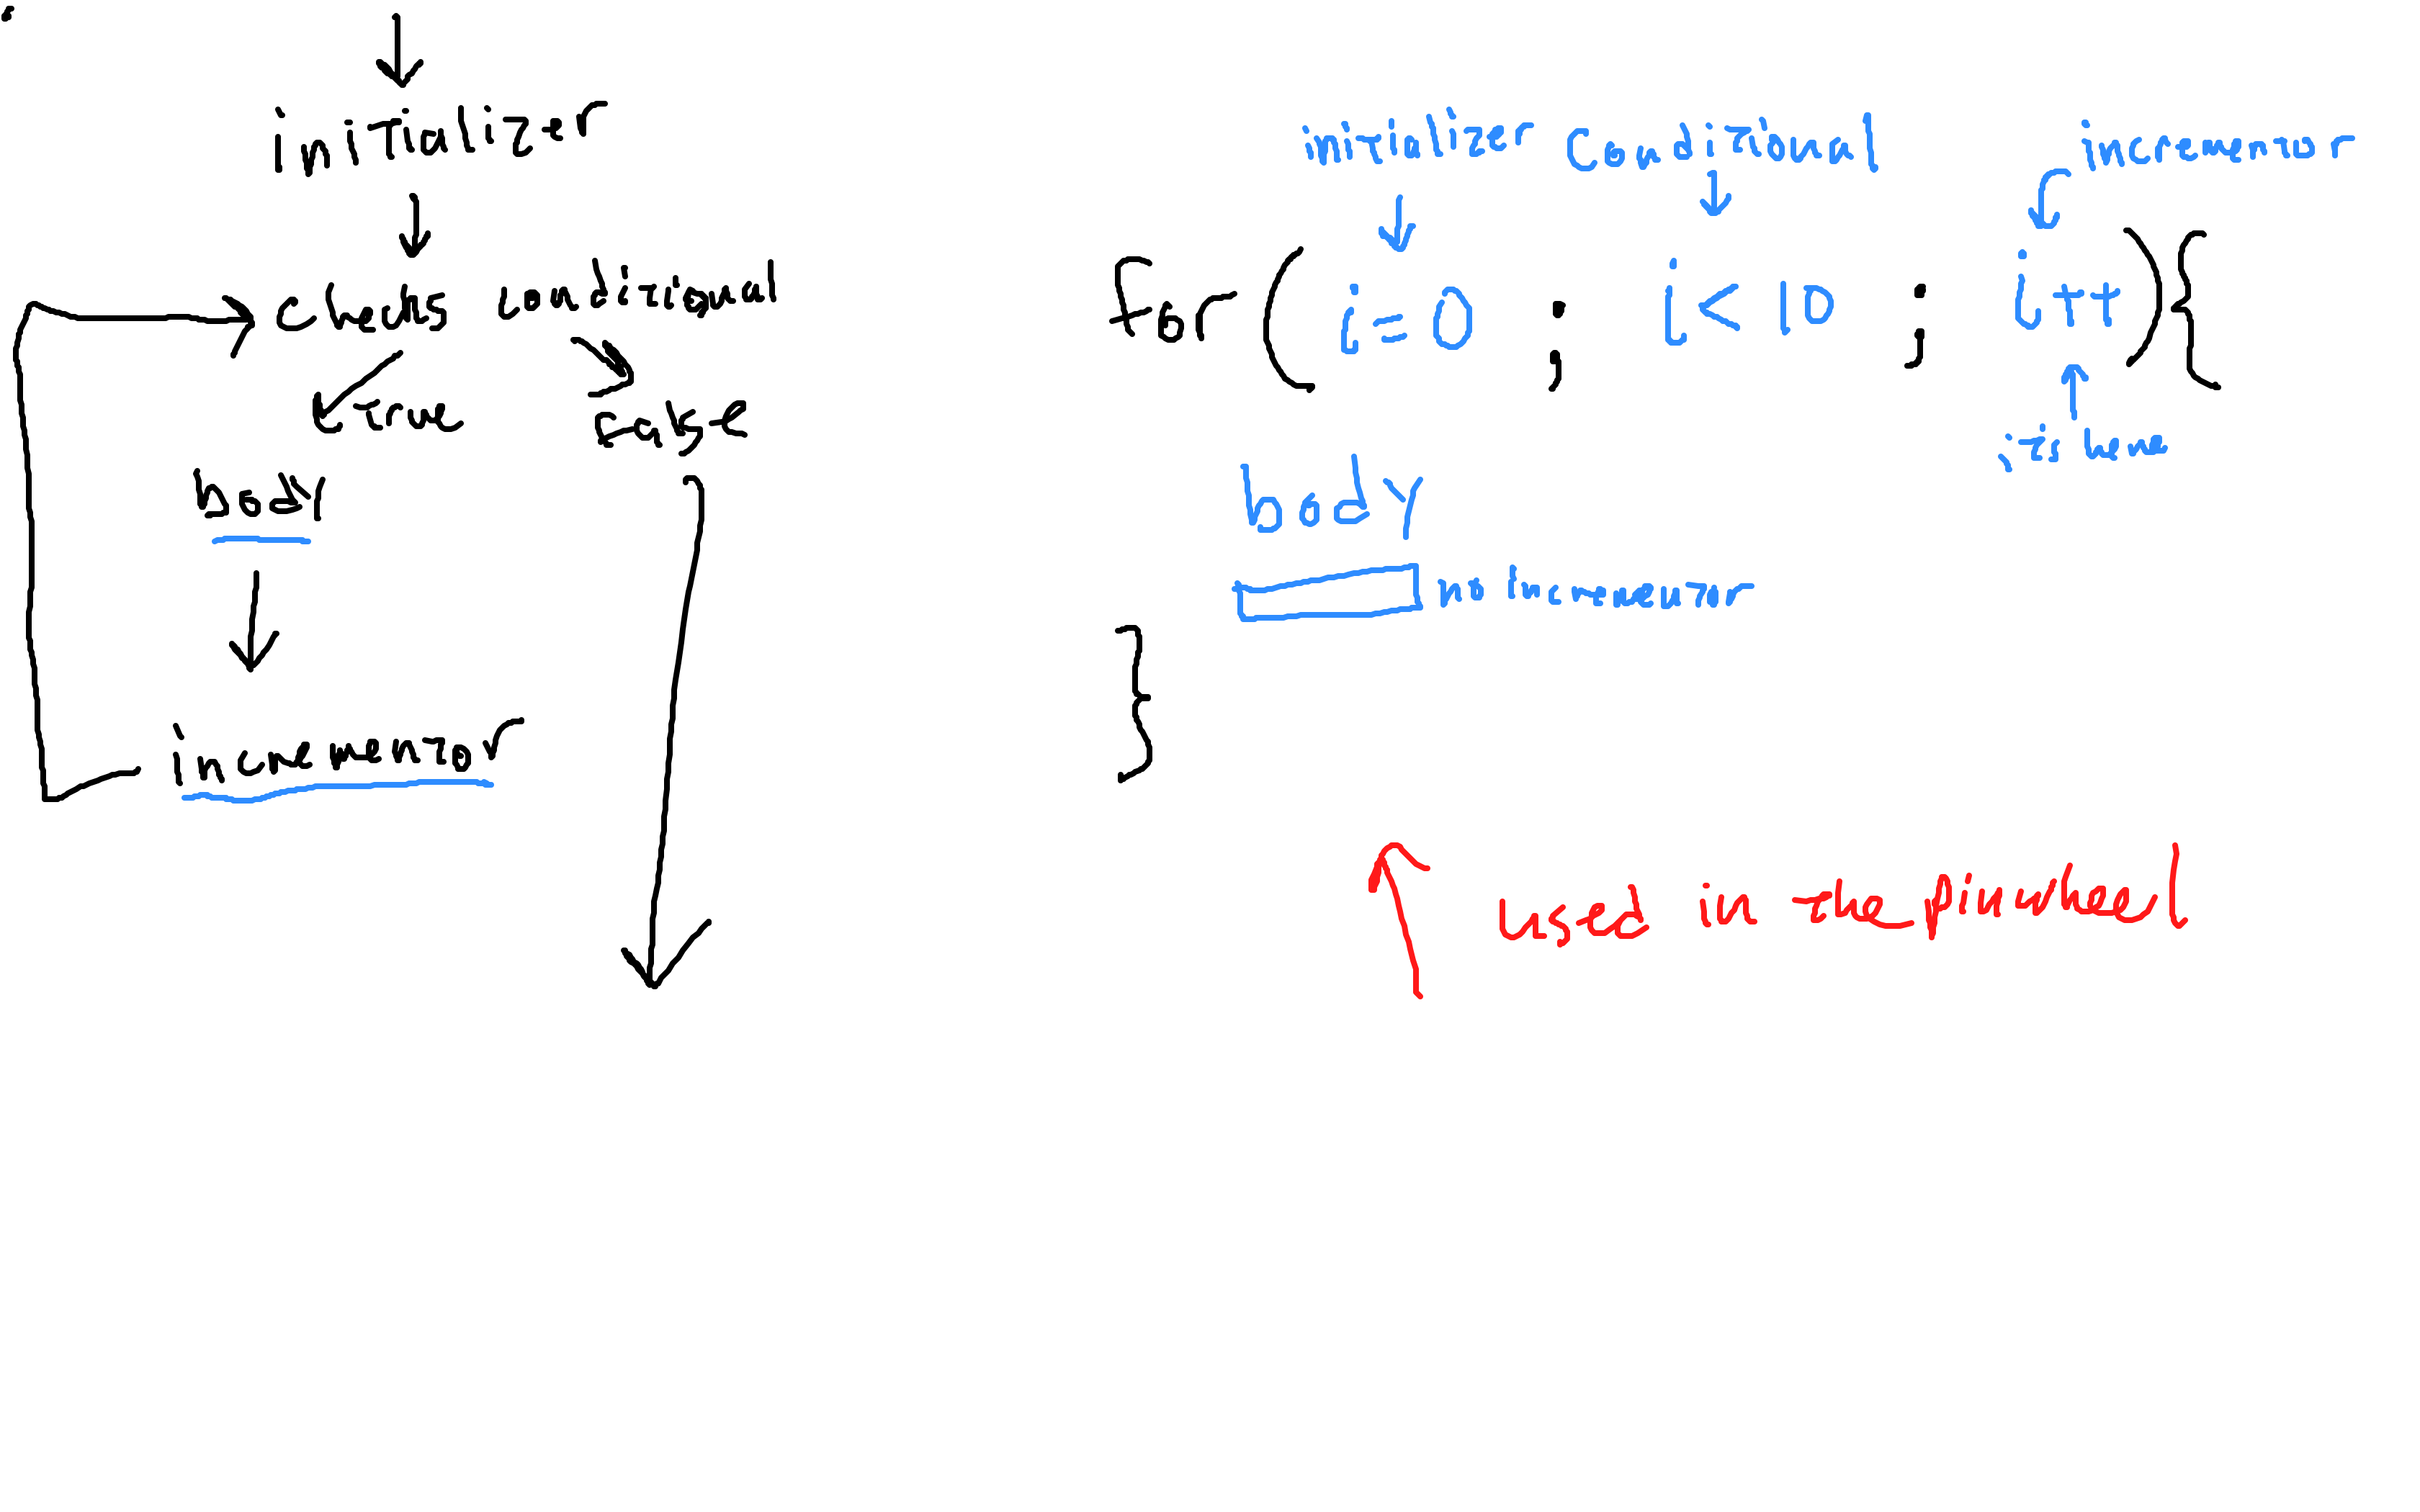 initializer
check conditional
True
False
body
incrementor
initilizer conditional incrementor
for ( i = 0 ; i < 10 ; i++ ) {
it is here
body
no incrementor
}
used in the pinwheel